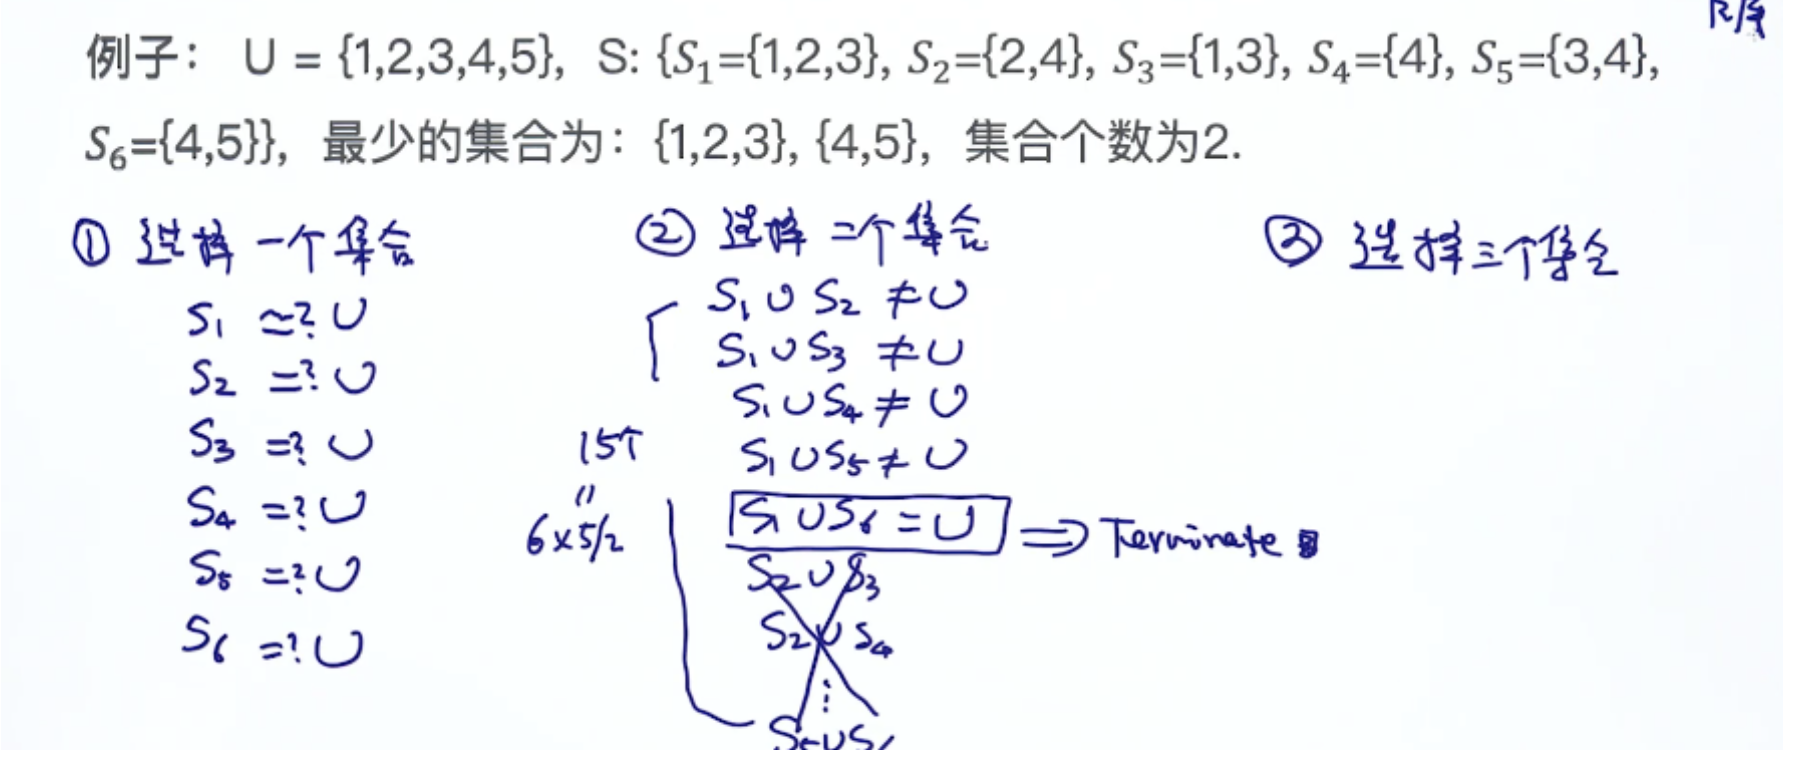 例子： U = {1,2,3,4,5}, S: {S₁={1,2,3}, S₂={2,4}, S₃={1,3}, S₄={4}, S₅={3,4},
S₆={4,5}}, 最少的集合为：{1,2,3}, {4,5}, 集合个数为2.
① 选择一个集合
S₁ ≃? U
S₂ =? U
S₃ =? U
S₄ =? U
S₅ =? U
S₆ =? U
② 选择二个集合
S₁ ∪ S₂ ≠ U
S₁ ∪ S₃ ≠ U
S₁ ∪ S₄ ≠ U
S₁ ∪ S₅ ≠ U
15个
"
6×5/2
S₁ ∪ S₆ = U ⇒ Terminate
S₂ ∪ S₃
S₂ ∪ S₄
⋮
S₅ ∪ S
③ 选择三个集合